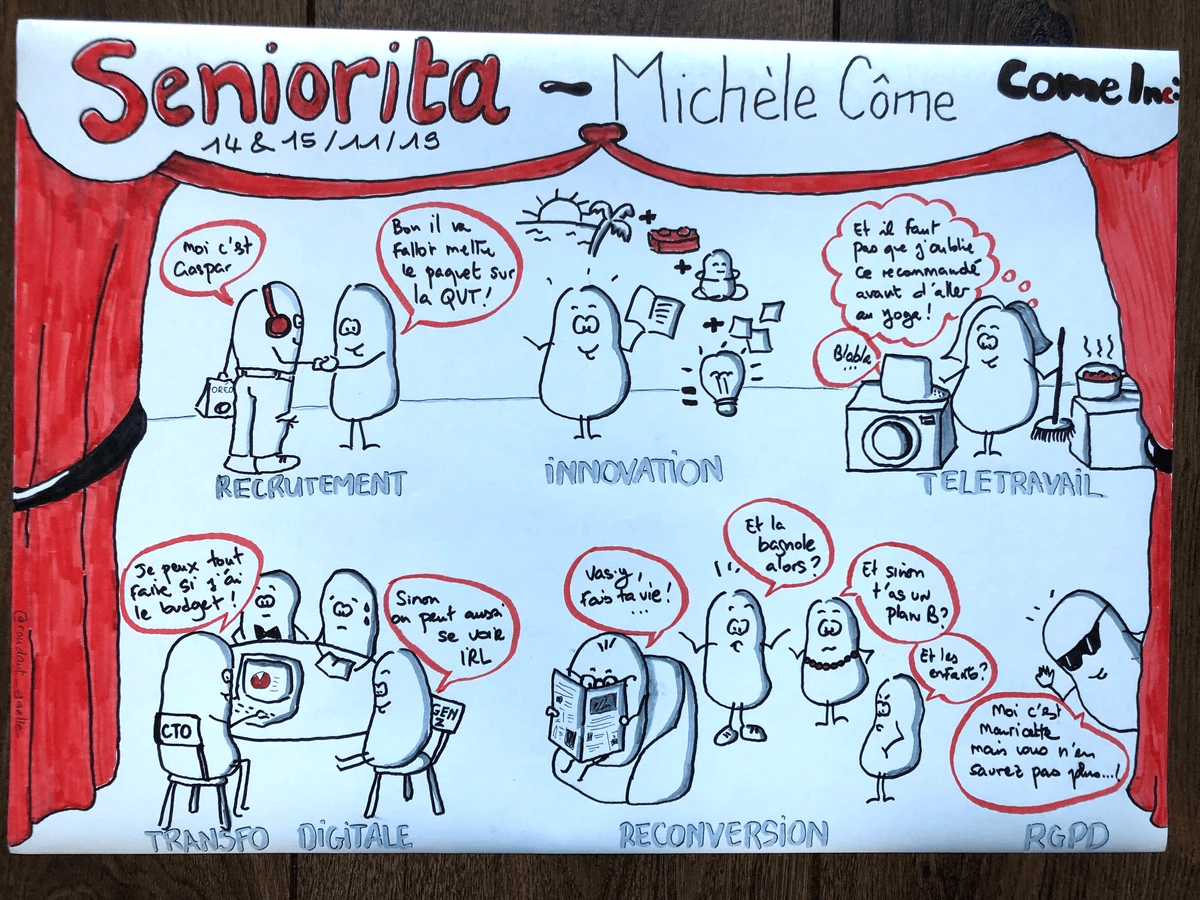 Seniorita - Michèle Côme
Come Inc.
14 & 15/11/19
Moi c'est
Gaspar
Bon il va
falloir mettre
le paquet sur
la QVT!
OREO
RECRUTEMENT
+
+
+
=
INNOVATION
Et il faut
pas que j'oublie
ce recommandé
avant d'aller
au yoga!
Blabla
...
TELETRAVAIL
Je peux tout
faire si j'ai
le budget!
Sinon
on peut aussi
se voir
IRL
CTO
GEN
Z
TRANSFO DIGITALE
Vas-y,
fais ta vie!
...
Et la
bagnole
alors?
Et sinon
t'as un
plan B?
Et les
enfants?
RECONVERSION
Moi c'est
Mauricette
mais vous n'en
saurez pas plus...!
RGPD
@roudaut_gaelle